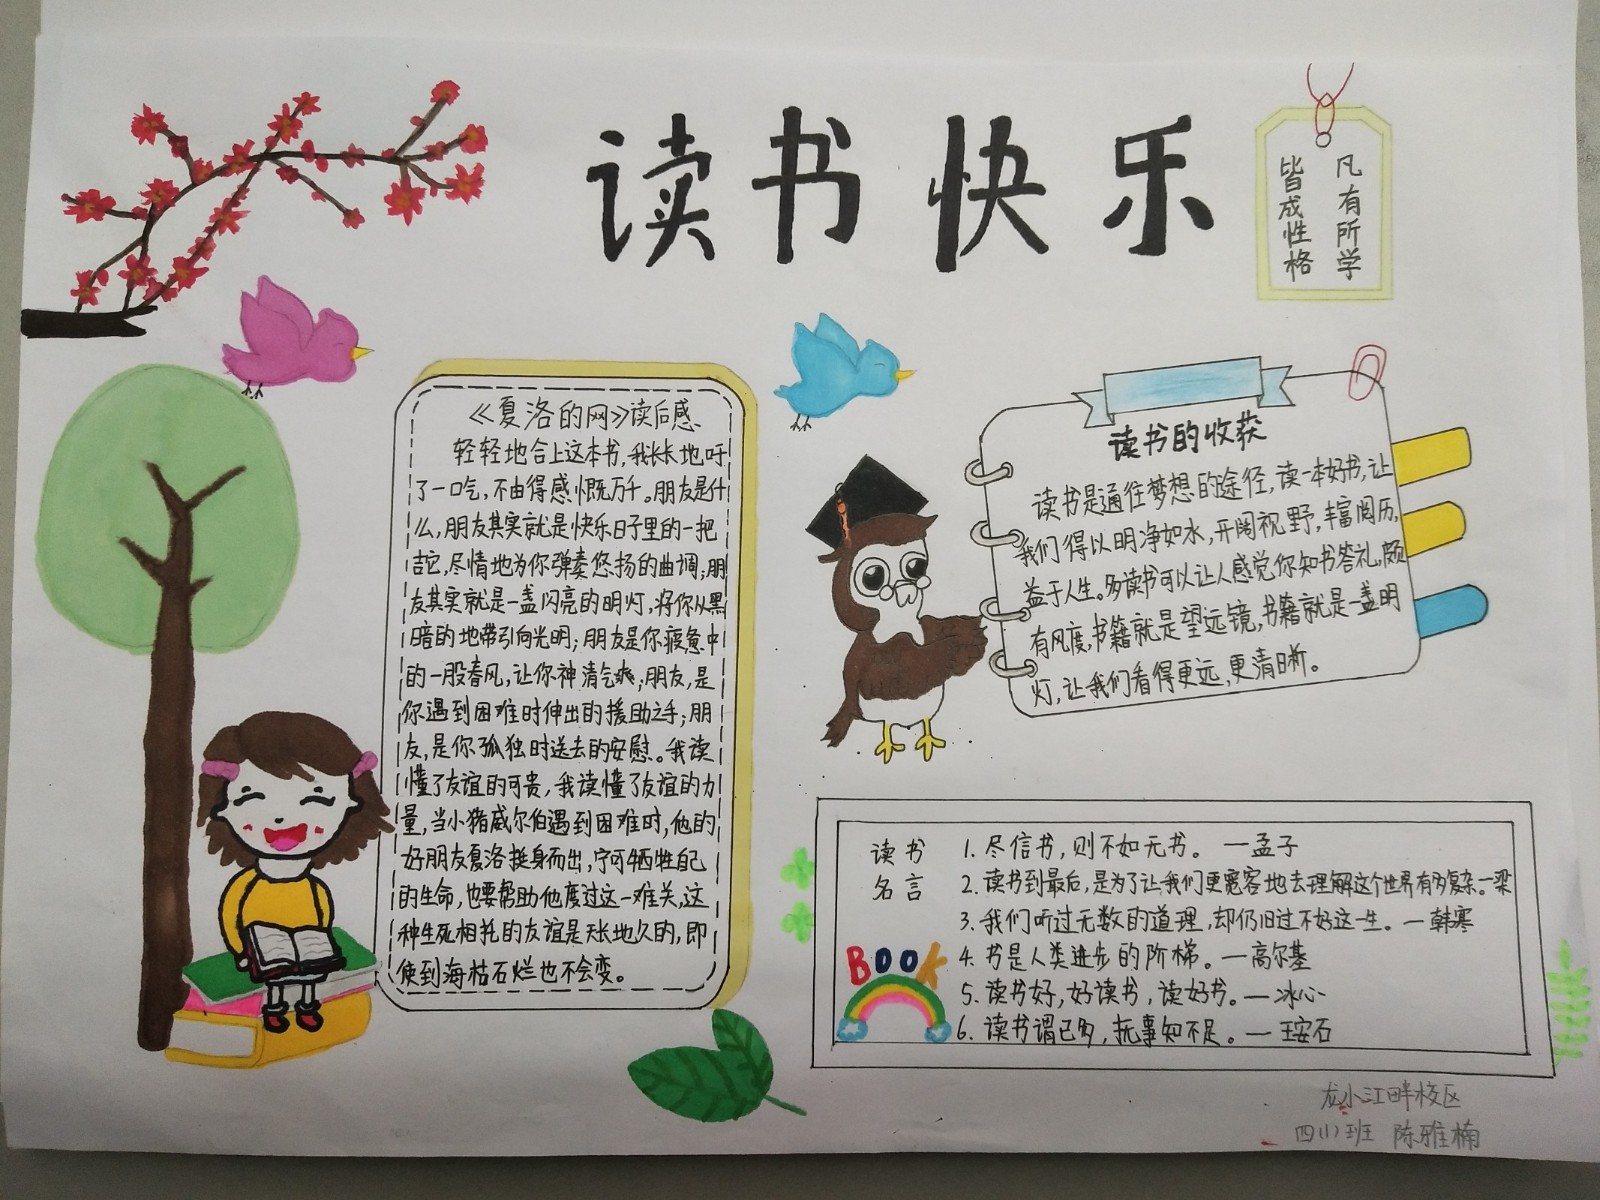 读书快乐
凡有所学
皆成性格
《夏洛的网》读后感
轻轻地合上这本书,我长长地吁
了一口气,不由得感慨万千。朋友是什
么,朋友其实就是快乐日子里的一把
吉它,尽情地为你弹奏悠扬的曲调;朋
友其实就是一盏闪亮的明灯,将你从黑
暗的地带引向光明;朋友是你疲惫中
的一股春风,让你神清气爽;朋友,是
你遇到困难时伸出的援助之手;朋
友,是你孤独时送去的安慰。我读
懂了友谊的可贵,我读懂了友谊的力
量,当小猪威尔伯遇到困难时,他的
好朋友夏洛挺身而出,宁可牺牲自己
的生命,也要帮助他度过这一难关,这
种生死相托的友谊是天长地久的,即
使到海枯石烂也不会变。
读书的收获
读书是通往梦想的途径,读一本好书,让
我们得以明净如水,开阔视野,丰富阅历,
益于人生。多读书可以让人感觉你知书答礼,颇
有风度,书籍就是望远镜,书籍就是一盏明
灯,让我们看得更远,更清晰。
读书
名言
1.尽信书,则不如无书。一孟子
2.读书到最后,是为了让我们更宽容地去理解这个世界有多复杂。一梁
3.我们听过无数的道理,却仍旧过不好这一生。一韩寒
4.书是人类进步的阶梯。一高尔基
5.读书好,好读书,读好书。一冰心
6.读书谓已多,抚事知不足。一王安石
BOOK
龙小江畔校区
四(1)班 陈雅楠